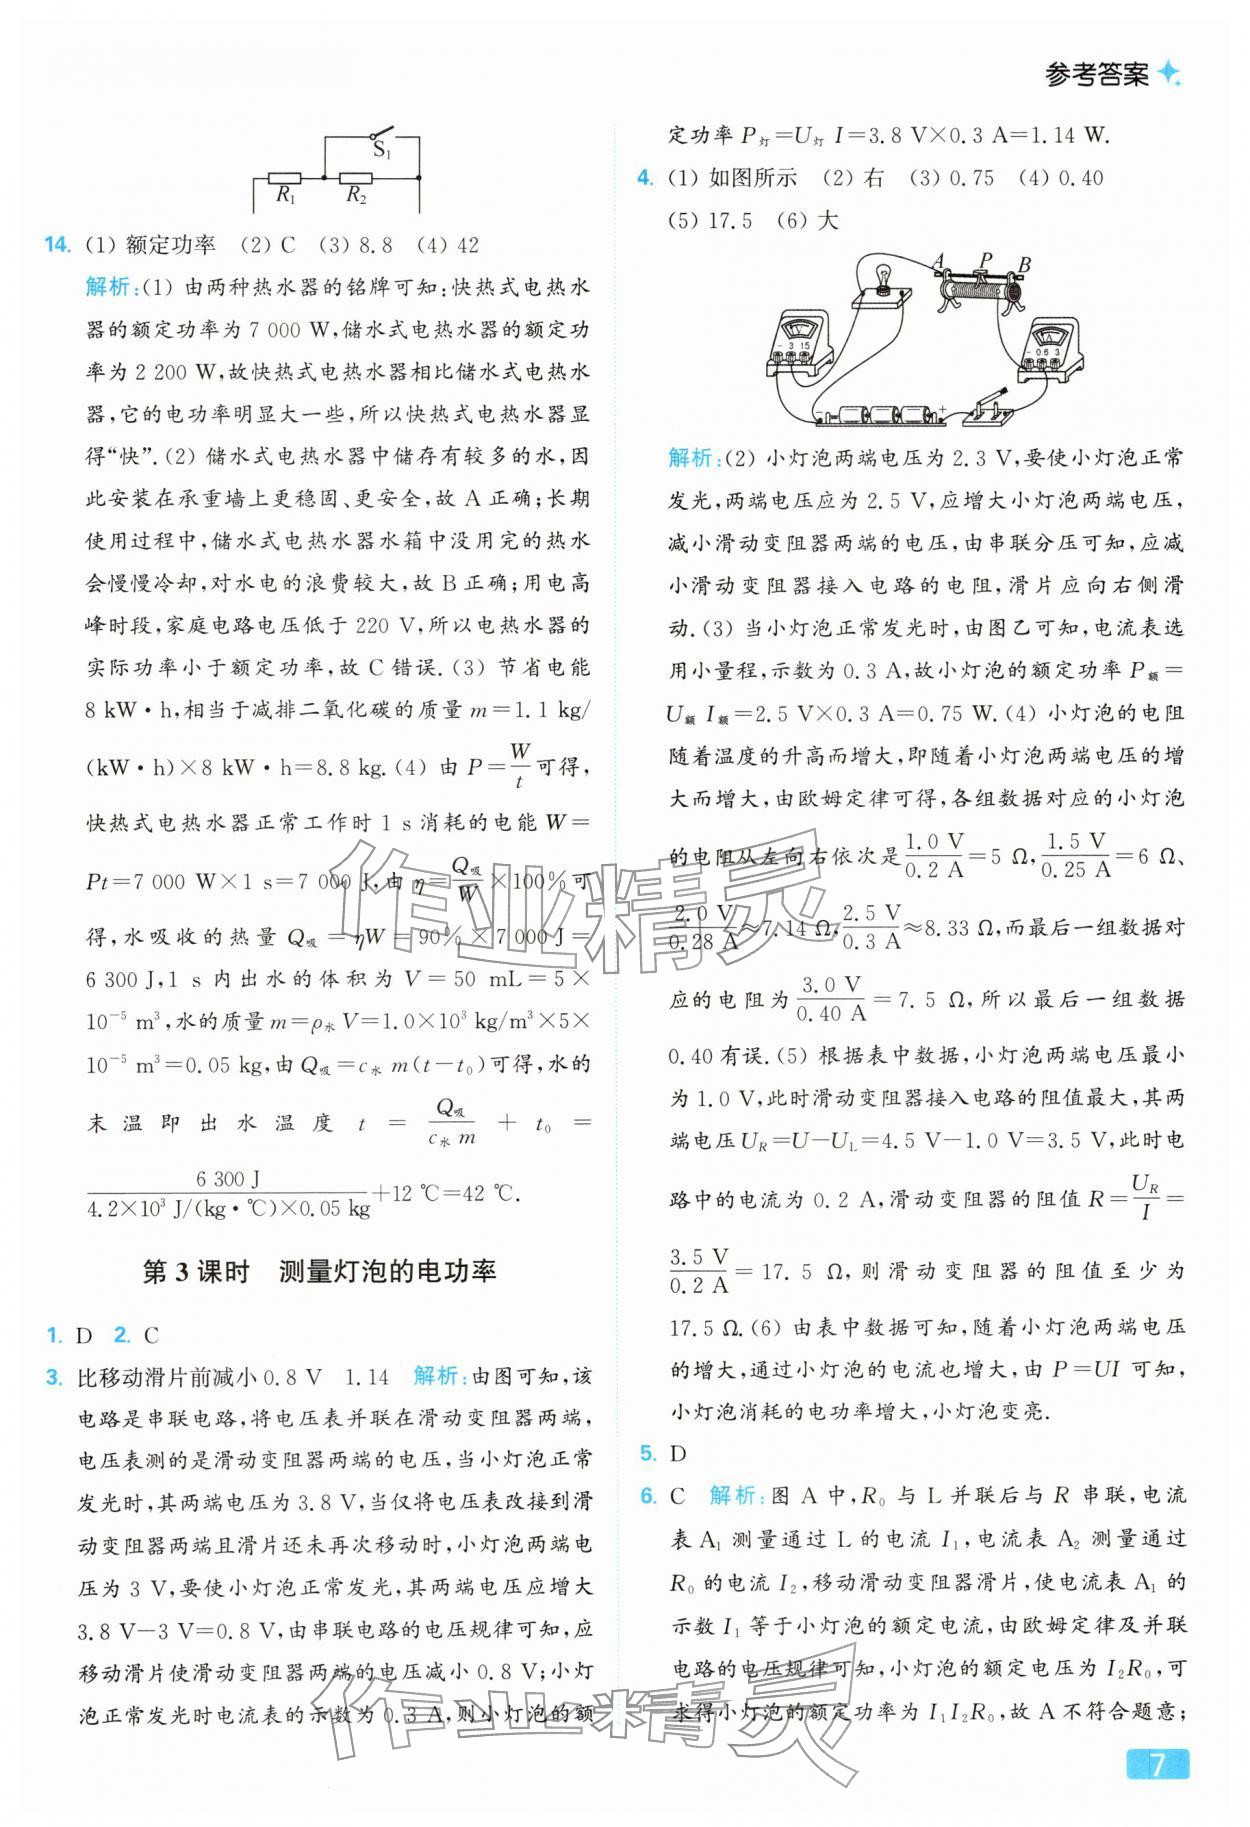 参考答案
S₁
R₁ R₂
14. (1) 额定功率 (2) C (3) 8.8 (4) 42
解析:(1) 由两种热水器的铭牌可知:快热式电热水
器的额定功率为 7 000 W,储水式电热水器的额定功
率为 2 200 W,故快热式电热水器相比储水式电热水
器,它的电功率明显大一些,所以快热式电热水器显
得“快”.(2) 储水式电热水器中储存有较多的水,因
此安装在承重墙上更稳固、更安全,故 A 正确;长期
使用过程中,储水式电热水器水箱中没用完的热水
会慢慢冷却,对水电的浪费较大,故 B 正确;用电高
峰时段,家庭电路电压低于 220 V,所以电热水器的
实际功率小于额定功率,故 C 错误.(3) 节省电能
8 kW·h,相当于减排二氧化碳的质量 m=1.1 kg/
(kW·h)×8 kW·h=8.8 kg.(4) 由 P=W/t可得,
快热式电热水器正常工作时 1 s 消耗的电能 W=
Pt=7 000 W×1 s=7 000 J,由 η=Q吸/W×100%可
得,水吸收的热量 Q吸=ηW=90%×7 000 J=
6 300 J,1 s 内出水的体积为 V=50 mL=5×
10⁻⁵ m³,水的质量 m=ρ水V=1.0×10³ kg/m³×5×
10⁻⁵ m³=0.05 kg,由 Q吸=c水 m(t-t₀)可得,水的
末温即出水温度 t=Q吸/c水 m+t₀=
6 300 J/4.2×10³ J/(kg·℃)×0.05 kg+12 ℃=42 ℃.
第 3 课时 测量灯泡的电功率
1. D 2. C
3. 比移动滑片前减小0.8 V 1.14 解析:由图可知,该
电路是串联电路,将电压表并联在滑动变阻器两端,
电压表测的是滑动变阻器两端的电压,当小灯泡正常
发光时,其两端电压为 3.8 V,当仅将电压表改接到滑
动变阻器两端且滑片还未再次移动时,小灯泡两端电
压为 3 V,要使小灯泡正常发光,其两端电压应增大
3.8 V-3 V=0.8 V,由串联电路的电压规律可知,应
移动滑片使滑动变阻器两端的电压减小 0.8 V;小灯
泡正常发光时电流表的示数为 0.3 A,则小灯泡的额
定功率 P灯=U灯 I=3.8 V×0.3 A=1.14 W.
4. (1) 如图所示 (2) 右 (3) 0.75 (4) 0.40
(5) 17.5 (6) 大
A P B
V
- 3 15
A
- 0.6 3
- +
解析:(2) 小灯泡两端电压为 2.3 V,要使小灯泡正常
发光,两端电压应为 2.5 V,应增大小灯泡两端电压,
减小滑动变阻器两端的电压,由串联分压可知,应减
小滑动变阻器接入电路的电阻,滑片应向右侧滑
动.(3) 当小灯泡正常发光时,由图乙可知,电流表选
用小量程,示数为 0.3 A,故小灯泡的额定功率 P额=
U额 I额=2.5 V×0.3 A=0.75 W.(4) 小灯泡的电阻
随着温度的升高而增大,即随着小灯泡两端电压的增
大而增大,由欧姆定律可得,各组数据对应的小灯泡
的电阻从左向右依次是1.0 V/0.2 A=5 Ω,1.5 V/0.25 A=6 Ω、
2.0 V/0.28 A≈7.14 Ω,2.5 V/0.3 A≈8.33 Ω,而最后一组数据对
应的电阻为3.0 V/0.40 A=7.5 Ω,所以最后一组数据
0.40 有误.(5) 根据表中数据,小灯泡两端电压最小
为 1.0 V,此时滑动变阻器接入电路的阻值最大,其两
端电压 U_R=U-U_L=4.5 V-1.0 V=3.5 V,此时电
路中的电流为 0.2 A,滑动变阻器的阻值 R=U_R/I=
3.5 V/0.2 A=17.5 Ω,则滑动变阻器的阻值至少为
17.5 Ω.(6) 由表中数据可知,随着小灯泡两端电压
的增大,通过小灯泡的电流也增大,由 P=UI 可知,
小灯泡消耗的电功率增大,小灯泡变亮.
5. D
6. C 解析:图 A 中,R₀ 与 L 并联后与 R 串联,电流
表 A₁ 测量通过 L 的电流 I₁,电流表 A₂ 测量通过
R₀ 的电流 I₂,移动滑动变阻器滑片,使电流表 A₁ 的
示数 I₁ 等于小灯泡的额定电流,由欧姆定律及并联
电路的电压规律可知,小灯泡的额定电压为 I₂R₀,可
求得小灯泡的额定功率为 I₁I₂R₀,故 A 不符合题意;
作业精灵
作业精灵
7